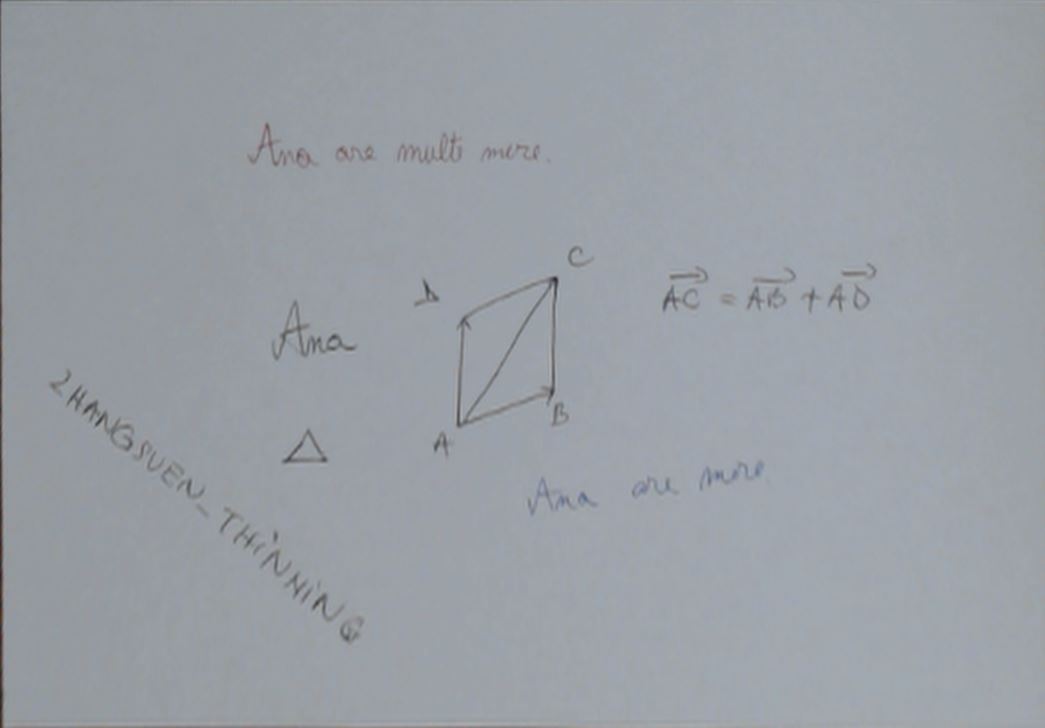 Ana are multe mere.
D
C
AC = AB + AD
Ana
A
B
Ana are mere
ZHANGSUEN_THINNING